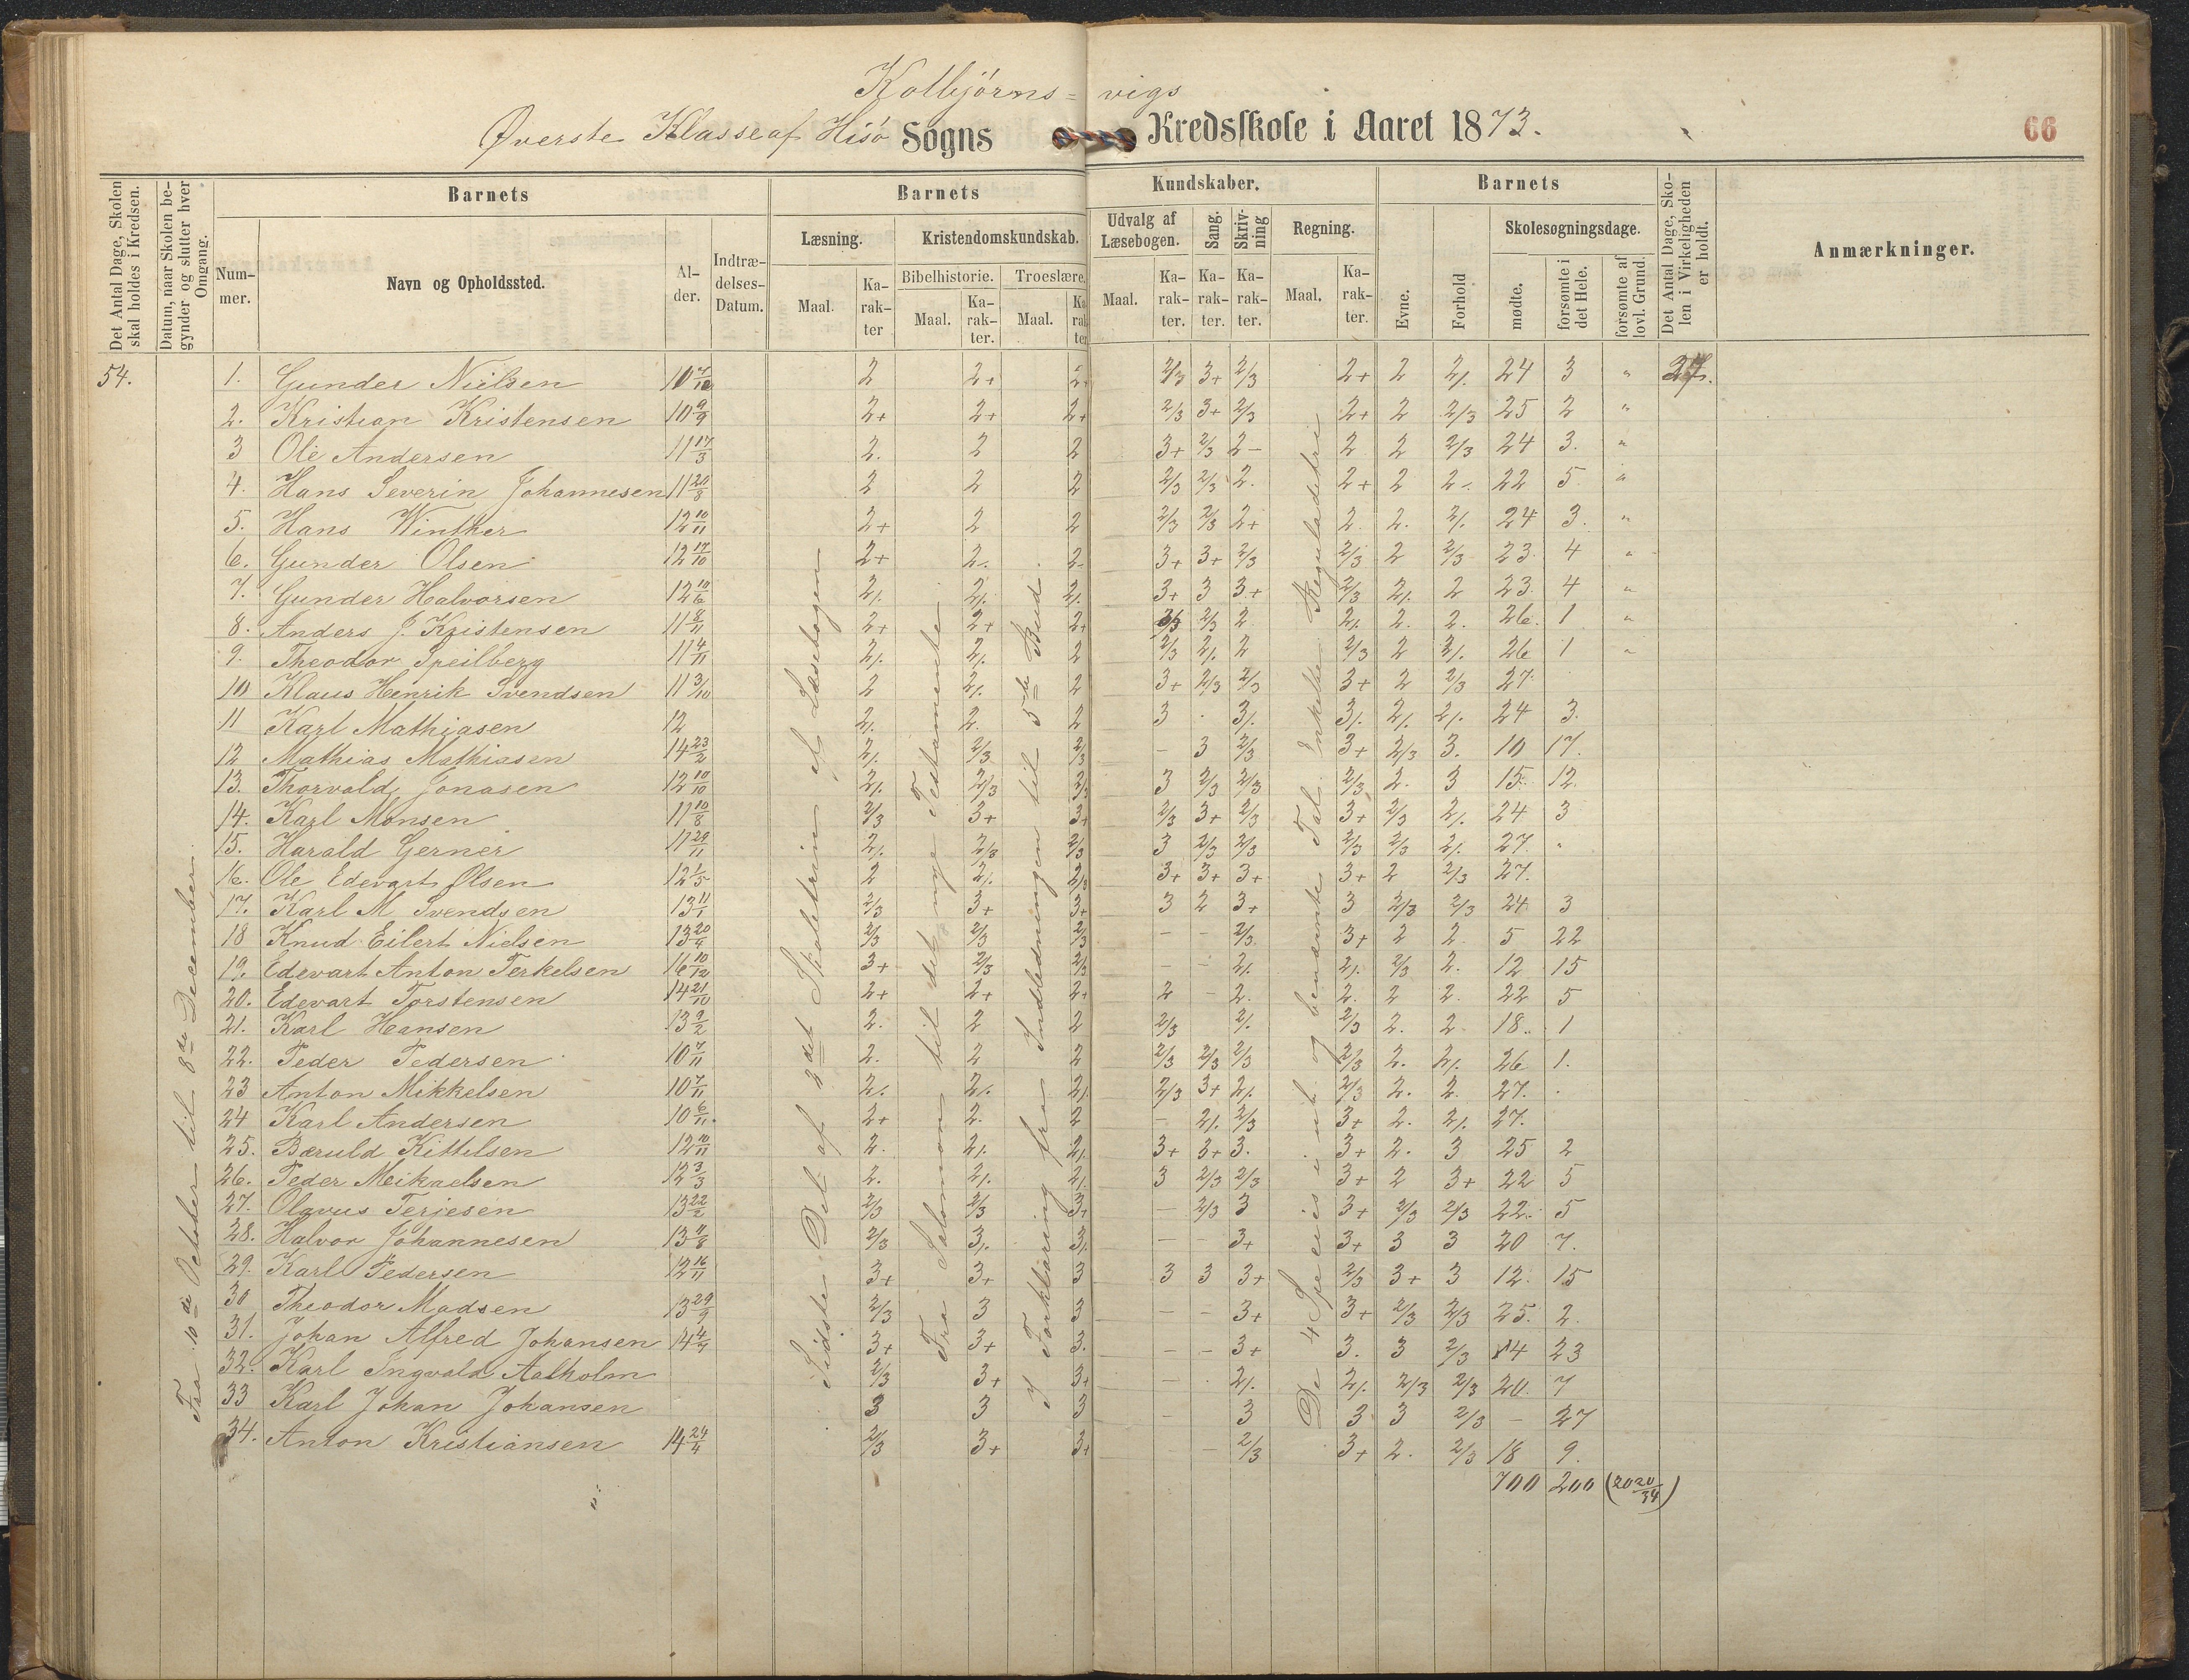 Kolbjørns = vigs
Øverste Klasse af Hisø Sogns Kredsskole i Aaret 1873.
66
Det Antal Dage, Skolen skal holdes i Kredsen.
Datum, naar Skolen begynder og slutter hver Omgang.
Barnets
Barnets
Kundskaber.
Barnets
Det Antal Dage, Skolen i Virkeligheden er holdt.
Anmærkninger.
Nummer.
Navn og Opholdssted.
Alder.
Indtrædelses-Datum.
Læsning.
Kristendomskundskab.
Udvalg af Læsebogen.
Sang.
Skrivning
Regning.
Evne.
Forhold
Skolesøgningsdage.
Bibelhistorie.
Troeslære.
Maal.
Karakter
Maal.
Karakter.
Maal.
Karakter
Maal.
Karakter.
Karakter.
Karakter.
Maal.
Karakter.
mødte.
forsømte i det Hele.
forsømte af lovl. Grund.
Fra 10de October til 8de December.
Sidste Del af 3det Skoletrin af Læsebogen
Fra Salomon til det nye Testamente.
Forklaring fra Indledningen til 5te Bud.
De 4 Species i ub og benævnte Tal. Enkelte Reguladetri
54. 1. Gunder Nielsen 10 7/12 2 2+ 2+ 2/3 3+ 2/3 2+ 2 2/. 24 3 " 27.
2. Kristian Kristensen 10 9/9 2+ 2+ 2+ 2/3 3+ 2/3 2+ 2 2/3 25 2 "
3 Ole Andersen 11 17/3 2. 2 2 3+ 2/3 2- 2 2 2/3 24 3. "
4. Hans Severin Johannesen 11 20/8 2 2 2 2/3 2/3 2. 2+ 2 2-. 22 5 "
5. Hans Winther 12 10/11 2+ 2 2 2/3 2/3 2+ 2. 2. 2/. 24 3. "
6. Gunder Olsen 12 17/10 2+ 2-. 2- 3+ 3+ 2/3 2/3 2 2/3 23. 4 "
7. Gunder Halvorsen 12 10/6 2/. 2/. 2/. 3+ 3 3+ 2/3 2/. 2 23. 4 "
8. Anders J. Kristensen 11 8/11 2+ 2+ 2+ 2/3 2/3 2 2/. 2. 2. 26. 1. "
9. Theodor Speilberg 11 4/11 2/. 2/. 2 2/3 2/. 2 2/3 2 2/. 26 1 "
10 Klaus Henrik Svendsen 11 3/10 2 2/. 2 3+ 2/3 2/3 3+ 2 2/3 27.
11 Karl Mathiasen 12 2/. 2. 2 3 . 3/. 3/. 2/. 2/. 24 3.
12 Mathias Mathiasen 14 23/2 2/. 2/3 2/3 - 3 2/3 3+ 2/3 3. 10 17.
13. Thorvald Jonasen 12 10/10 2/. 2/3 2/3 3 2/3 2/3 2/3 2. 3 15. 12.
14. Karl Monsen 11 10/8 2/3 3+ 3+ 2/3 3+ 2/3 3+ 2/3 2/. 24 3
15. Harald Gerner 11 29/11 2/. 2/3 2/3 3 2/3 2/3 2/3 2/3 2/. 27. "
16. Ole Edevart Olsen 12 1/5 2 2/. 2/3 3+ 3+ 3+ 3+ 2 2/3 27.
17. Karl M Svendsen 13 11/1 2/3 3+ 3+ 3 2 3+ 3 2/3 2/3 24 3
18 Knud Eilert Nielsen 13 20/4 2/3 2/3 2/3 - - 2/3 3+ 2 2 5 22
19. Edevart Anton Terkelsen 16 10/12 3+ 2/3 2/3 - - 2/. 2/. 2/3 2. 12 15
20. Edevart Torstensen 14 21/10 2+ 2+ 2+ 2 - 2. 2. 2 2. 22 5
21. Karl Hansen 13 9/2 2. 2 2 2/3 2/. 2/3 2. 2 18. 1
22. Peder Pedersen 10 7/11 2. 2 2 2/3 2/3 2/3 2/3 2. 2/. 26 1.
23 Anton Mikkelsen 10 7/11 2/. 2/. 2/. 2/3 3+ 2/. 2/3 2. 2. 27. .
24 Karl Andersen 10 6/11. 2+ 2. 2 - 2/. 2/3 3+ 2. 2/. 27.
25. Bæruld Kittilsen 12 10/11 2. 2/. 2/. 3+ 3+ 3. 3+ 2. 3 25 2
26. Peder Meikaelsen 12 3/3 2. 2/. 2/. 3 2/3 2/3 3+ 2 3+ 22 5
27. Olavus Terjesen 13 22/2 2/3 2/3 3+ - 2/3 3 3+ 2/3 2/3 22. 5
28. Halvor Johannesen 13 11/8 2/3 3/. 3/. - - 3+ 3+ 3 3 20 7.
29. Karl Pedersen 12 16/11 3+ 3+ 3 3 3 3+ 2/3 3+ 3 12. 15
30 Theodor Madsen 13 29/9 2/3 3 3 - - 3+ 3+ 2/3 2/3 25. 2.
31. Johan Alfred Johansen 14 4/4 3+ 3+ 3. - - 3+ 3. 3 2/3 4 23
32. Karl Ingvald Aalholm 2/3 3+ 3+ - . 2/. 2/. 2/3 2/3 20. 7
33 Karl Johan Johansen 3 3 3 - 3 3 3 2/3 - 27
34. Anton Kristiansen 14 24/4 2/3 3+ 3+ - 2/3 3+ 2. 2/3 18 9.
700 200 (20 20/34)